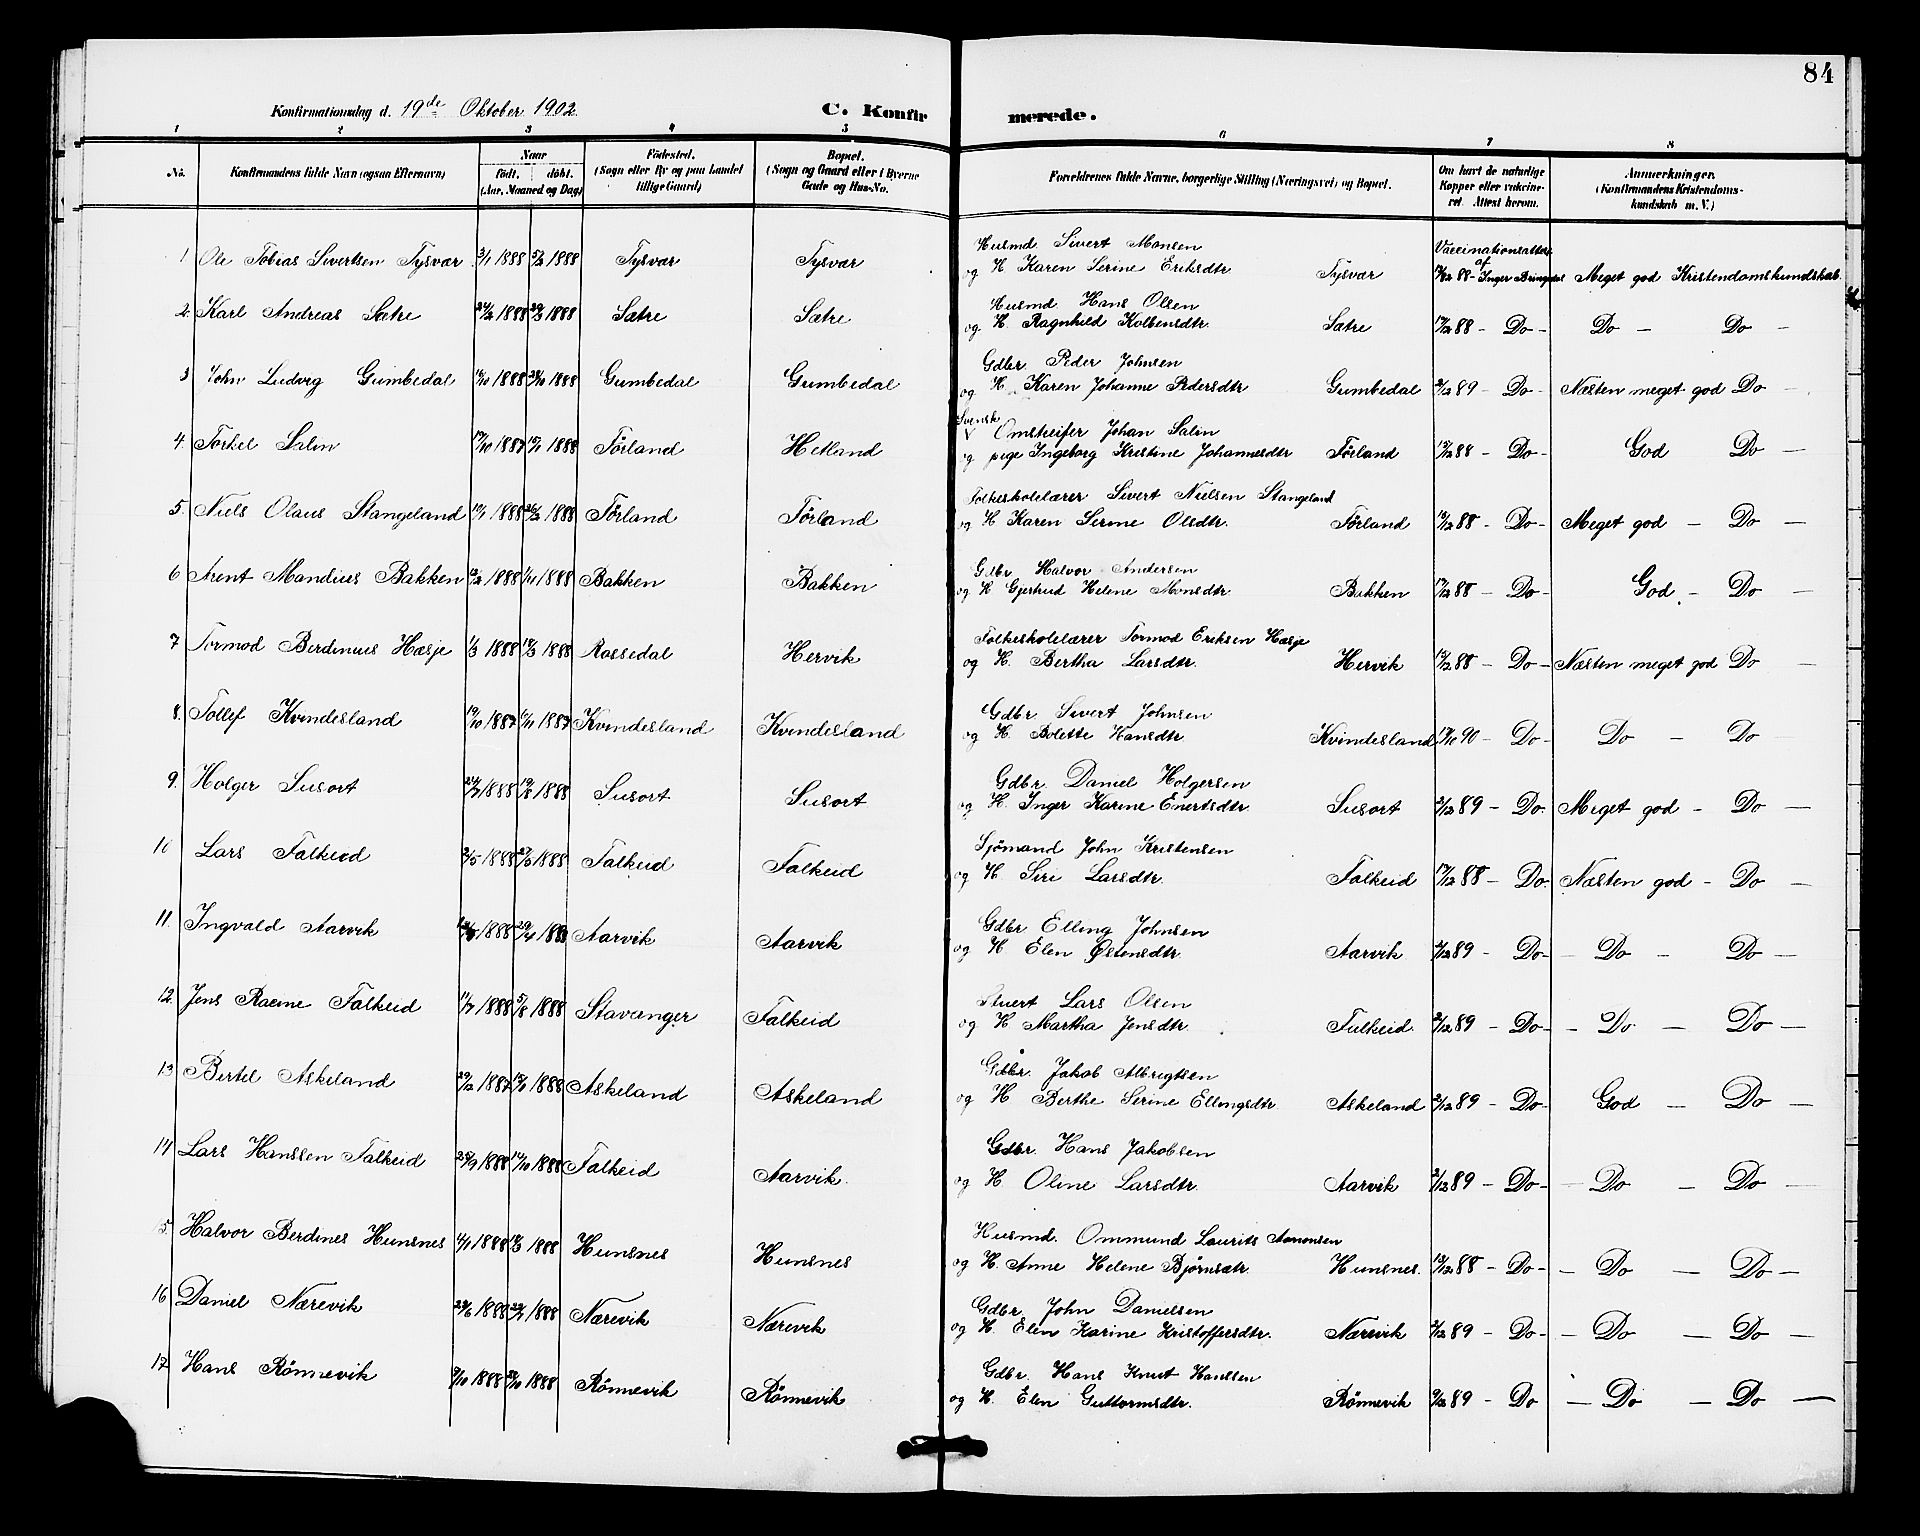 84
Konfirmationsdag d. 19de Oktober 1902.
C. Konfirmerede.
1 2 3 4 5 6 7 8
No. Konfirmandens fulde Navn (ogsaa Efternavn) Naar født. døbt. (Aar, Maaned og Dag) Fødested. (Sogn eller By og paa Landet tillige Gaard) Bopæl. (Sogn og Gaard eller i Byerne Gade og Hus-No. Forældrenes fulde Navne, borgerlige Stilling (Næringsvei) og Bopæl. Om havt de naturlige Kopper eller vaccineret. Attest herom. Anmerkninger. (Konfirmandens Kristendomskundskab m. V.)
1 Ole Tobias Sivertsen Tysvær 1888 1888 Tysvær Tysvær Husmd. Sivert Monsen
og H. Karen Serine Eriksdtr Tysvær Vaccinationsattest af 88 - Inger Meget god Kristendomskundskab.
2. Karl Andreas Sætre 1888 1888 Sætre Sætre Husmd. Hans Olsen
og H. Ragnhild Kolbensdtr. Sætre 88 - Do - Do - Do -
3 John Ludvig Gumbedal 1888 1888 Gumbedal Gumbedal Gdbr. Peder Johnsen
og H. Karen Johanne Pedersdtr Gumbedal 2/12 89 - Do - Næsten meget god Do -
4. Torkel Salin 1887 1888 Førland Hetland Svensk Omstreifer Johan Salin
og pige Ingeborg Kristine Johannesdtr Førland 88 - Do - God Do -
5. Niels Olaus Stangeland 1888 1888 Førland Førland Folkeskolelærer Sivert Nielsen Stangeland
og H. Karen Serine Olsdtr. Førland 88 - Do - Meget god - Do -
6 Arent Mandius Bakken 1888 1888 Bakken Bakken Gdbr Halvor Andersen
og H Gjertrud Helene Monsdtr Bakken 88 - Do - God - Do -
7 Tormod Berdinius Hæsje 1/3 1888 1888 Rossedal Hervik Folkeskolelærer Tormod Eriksen Hæsje
og H. Bertha Larsdtr. Hervik 88 - Do - Næsten meget god Do -
8. Tollef Kvindesland 1887 1887 Kvindesland Kvindesland Gdbr Sivert Johnsen
og H. Bolette Hansdtr Kvindesland 90 - Do - Do - Do -
9. Holger Susort 1888 1888 Susort Susort Gdbr. Daniel Holgersen
og H. Inger Karine Enertsdtr. Susort 2/12 89 - Do - Meget god - Do -
10 Lars Falkeid 1888 1888 Falkeid Falkeid Sjømand John Kristensen
og H Siri Larsdtr. Falkeid 88 - Do - Næsten god - Do -
11. Ingvald Aarvik 1888 Aarvik Aarvik Gdbr Elling Johnsen
og H Elen Østensdtr. Aarvik 2/12 89 - Do - Do - Do -
12. Jens Racine Falkeid 1888 5/8 1888 Stavanger Falkeid Stuert Lars Olsen
og H. Martha Jensdtr. Falkeid. 2/12 89 - Do - Do - Do -
13 Bertel Askeland 29/12 1887 1888 Askeland Askeland Gdbr. Jakob Albrigtsen
og H Berthe Serine Ellingsdtr Askeland 2/12 89 - Do - God - Do -
14 Lars Hanssen Falkeid 1888 14/10 1888 Falkeid Aarvik. Gdbr. Hans Jakobsen
og H Oline Larsdtr. Aarvik 2/12 89 - Do - Do - Do -
15 Halvor Berdines Hunsnes 1888 1888 Hunsnes Hunsnes Husmd. Ommund Laurits Aamonsen
og H. Anne Helene Bjørnsdtr. Hunsnes. 88 - Do - Do - Do -
16 Daniel Nærevik 1888 1888 Nærevik Nærevik Gdbr. John Danielsen
og H. Elen Karine Kristoffersdtr. Nærevik 2/12 89 - Do - Do - Do -
17 Hans Rønnevik 1888 1888 Rønnevik Rønnevik Gdbr. Hans Knut Hanssen
og H. Elen Guttormsdtr. Rønnevik 89 - Do - Do - Do -